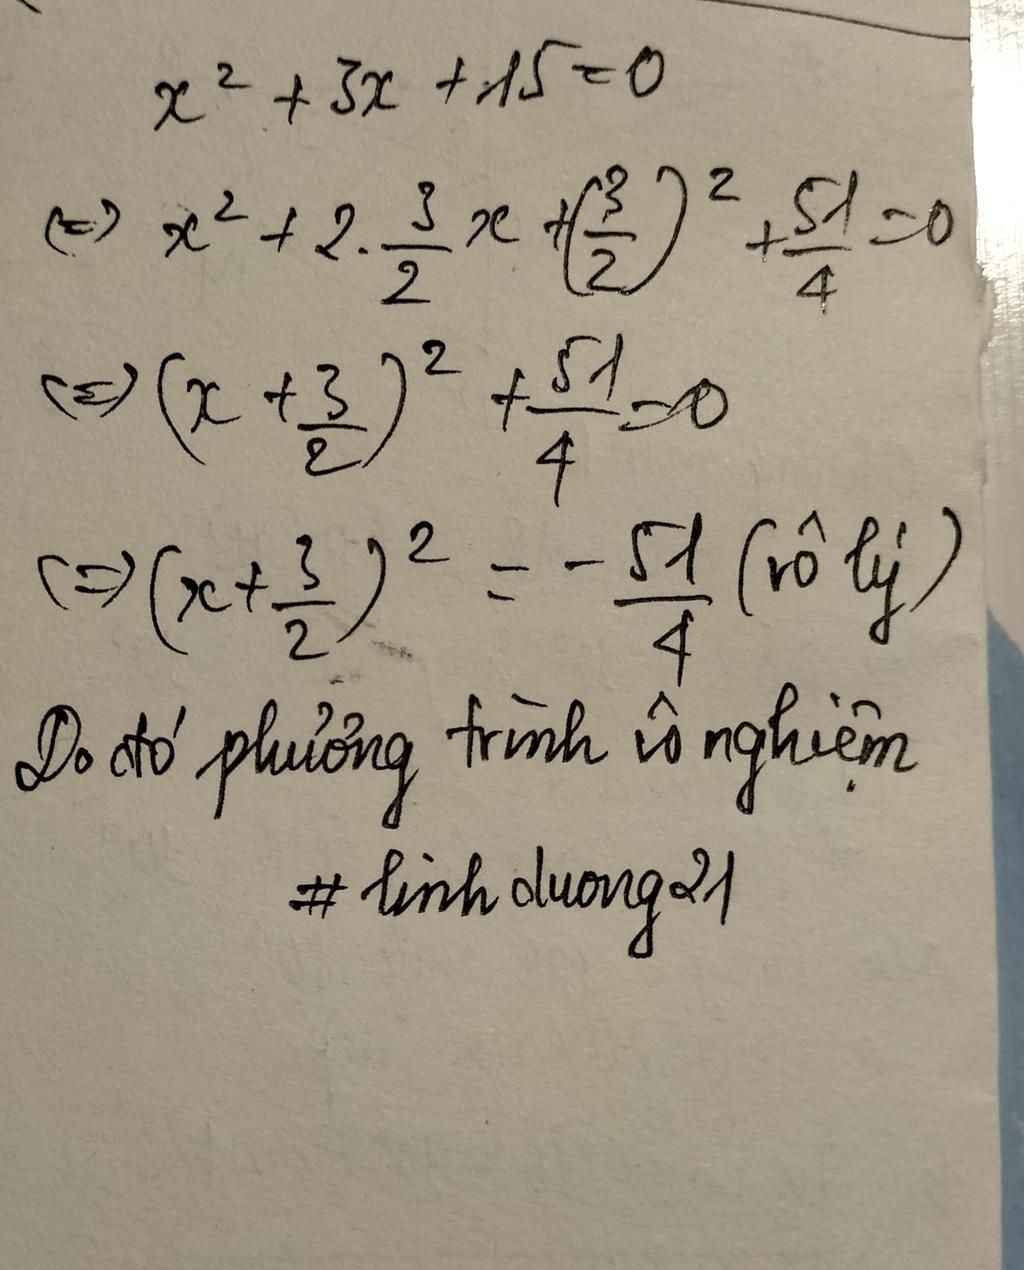 x² + 3x + 15 = 0
(=) x² + 2. 3/2 x + (3/2)² + 51/4 = 0
(=) (x + 3/2)² + 51/4 = 0
(=) (x + 3/2)² = - 51/4 (vô lý)
Do đó phương trình vô nghiệm
# linh duong 21